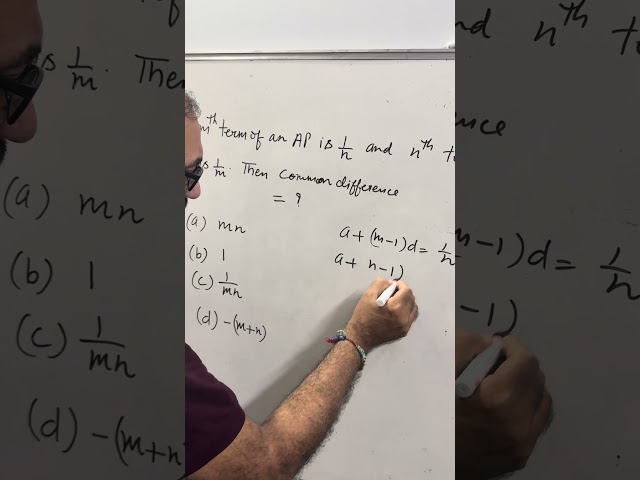 mth term of an AP is 1/n and nth t
is 1/m. Then Common difference
= ?
(a) mn
(b) 1
(c) 1/mn
(d) -(m+n)
a + (m-1)d = 1/n
a + n-1)